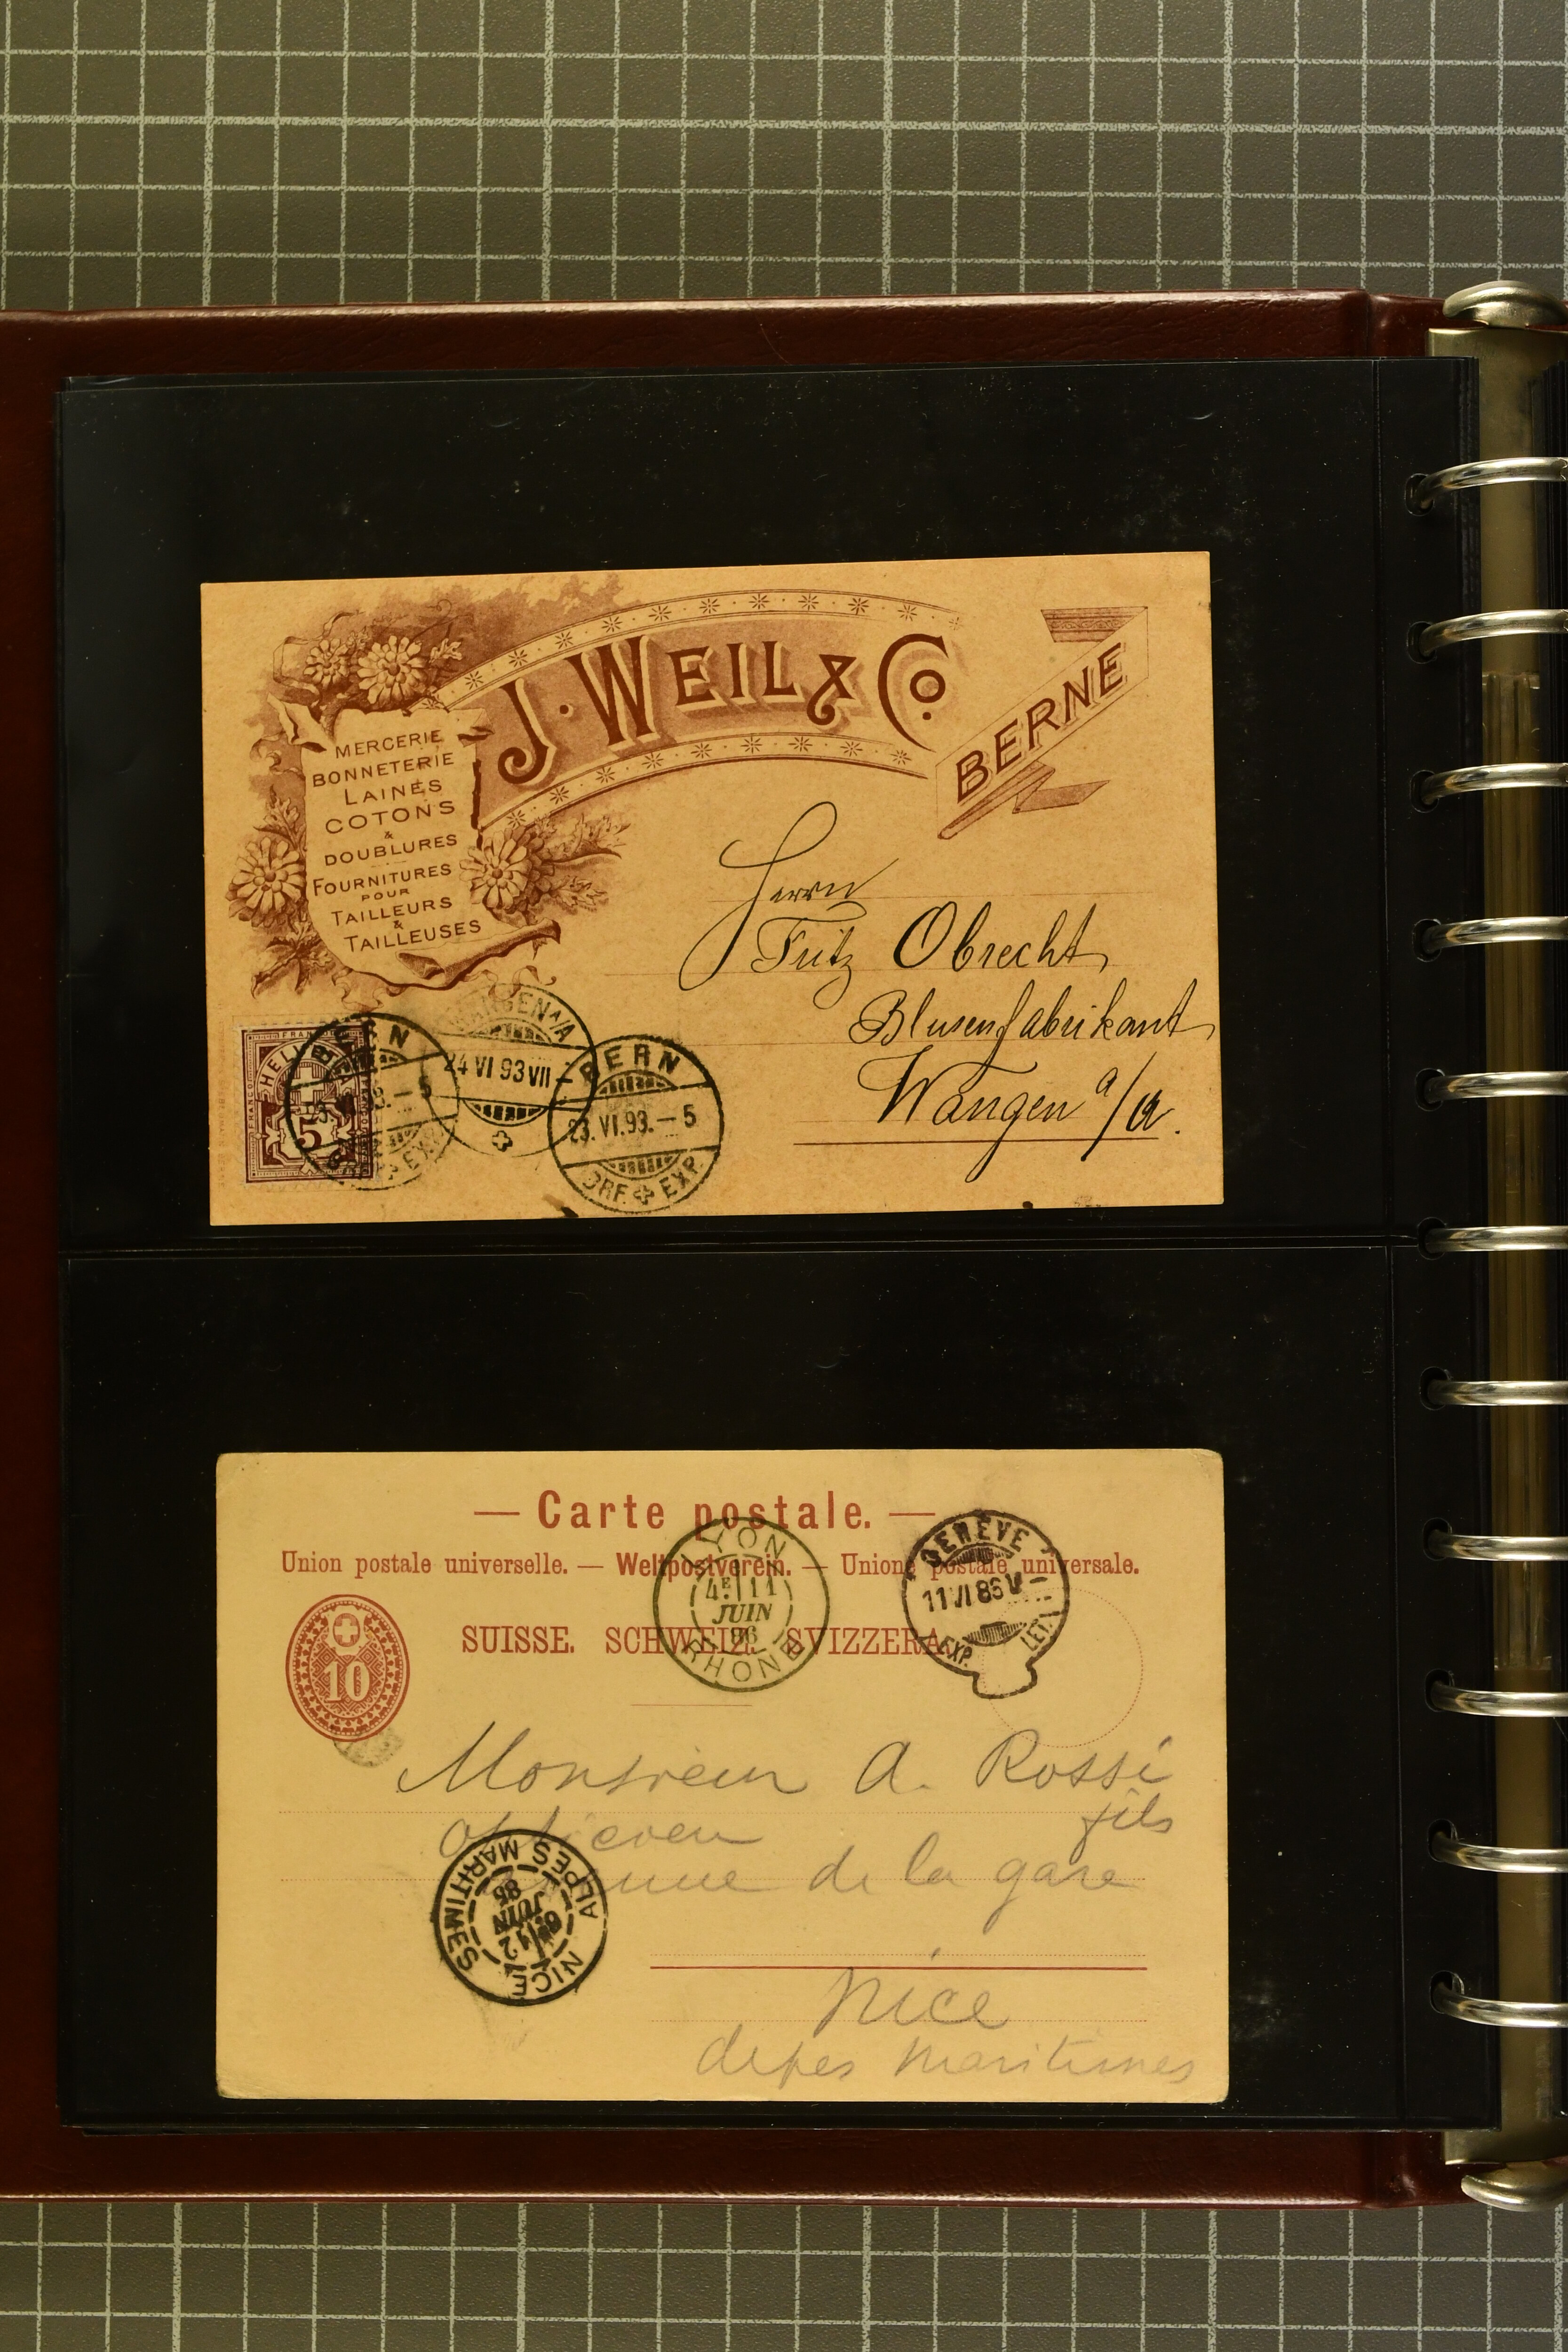 J. WEIL & Co.
BERNE
MERCERIE
BONNETERIE
LAINES
COTONS
&
DOUBLURES
FOURNITURES
POUR
TAILLEURS
&
TAILLEUSES
Herrn
Fritz Obrecht
Blusenfabrikant
Wangen a/A.
FRANCO
HELVETIA
5
BERN
WANGEN A/A
24 VI 93 VII –
BERN
23. VI. 93. – 5
BRF. EXP.
— Carte postale. —
Union postale universelle. — Weltpostverein. — Unione postale universale.
SUISSE. SCHWEIZ. SVIZZERA.
10
LYON
4E 11
JUIN
86
RHONE
GENÈVE
11 VI 86 V –
EXP. LET.
Monsieur A. Rossi
fils
de la gare
Nice
Alpes Maritimes
NICE
12
JUIN
86
ALPES MARITIMES